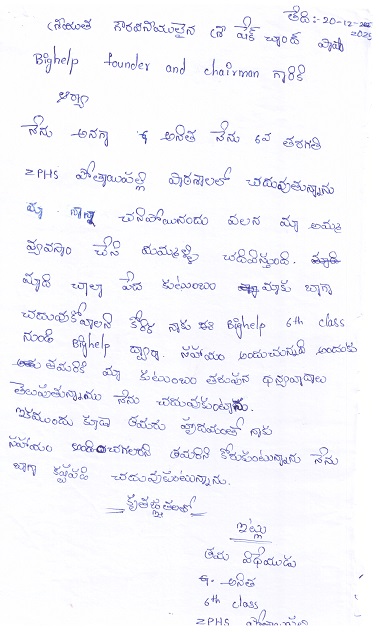 తేది:-20-12-2025
శ్రీయుత గౌరవనీయులైన శ్రీ షేక్ చాంద్ పాషా
Bighelp founder and chairman గారికి
ఆర్యా
నేను అనగా అనిత నేను 6వ తరగతి
ZPHS పోతాయిపల్లి పాఠశాలలో చదువుతున్నాను
మా నాన్న చనిపోయినందు వలన మా అమ్మ
వ్యవసాయం చేసి మమ్మల్ని చదివిస్తుంది.
మాది చాలా పేద కుటుంబం మాకు బాగా
చదువుకోవాలనే కోరిక నాకు ఈ Bighelp 6th class
నుండి Bighelp ద్వారా. సహాయం అందుచున్నది అందుకు
తమరికి మా కుటుంబం తరుపున ధన్యవాదాలు
తెలుపుతున్నాము నేను చదువుకుంటాను.
ఇకముందు కూడా తమరు హృదయంతో నాకు
సహాయం అందించగలరని తమరిని కోరుకుంటున్నాను నేను
బాగా కష్టపడి చదువుకుంటున్నాను.
కృతజ్ఞతలతో
ఇట్లు
తమ విధేయుడు
అనిత
6th class
ZPHS పోతాయిపల్లి